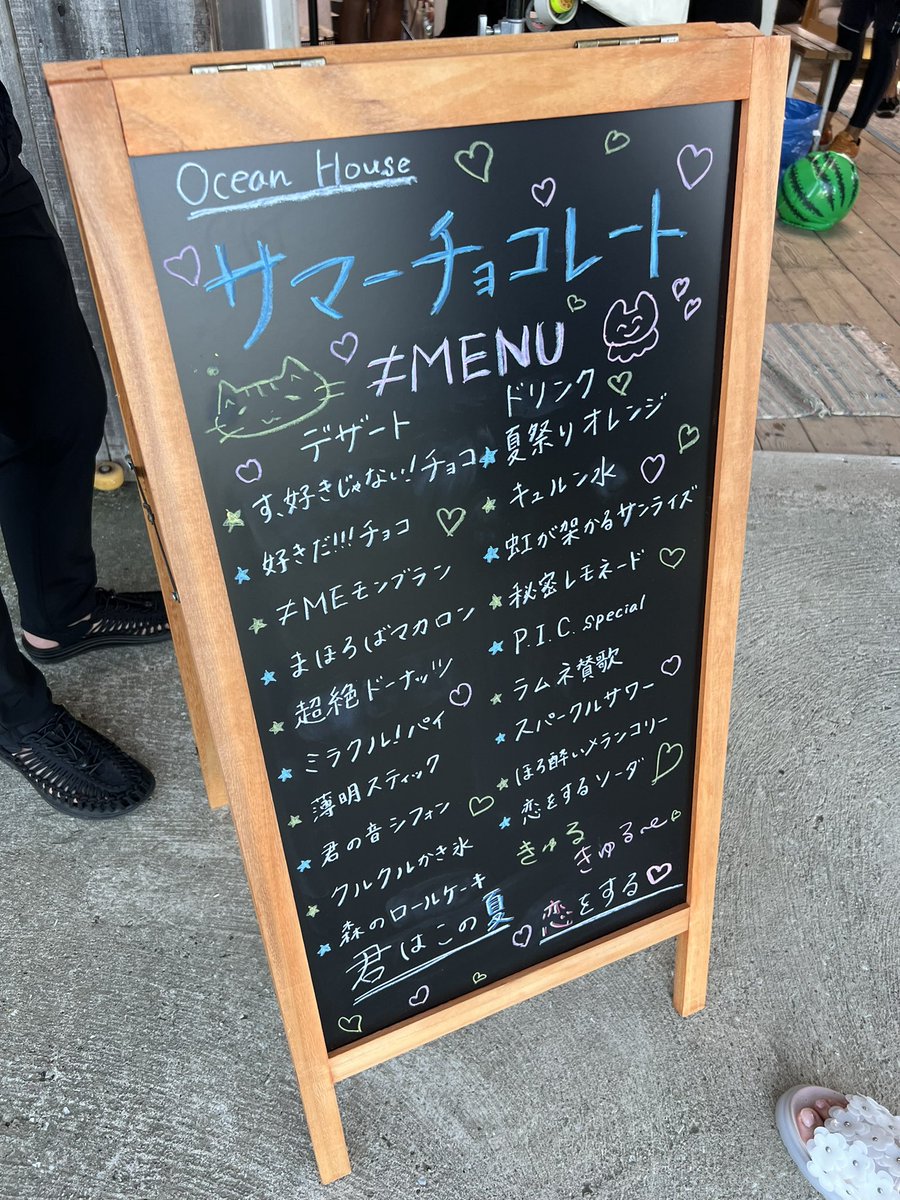 Ocean House
サマーチョコレート
≠MENU
デザート
す、好きじゃない!チョコ
好きだ!!!チョコ
≠MEモンブラン
まほろばマカロン
超絶ドーナッツ
ミラクル!パイ
薄明スティック
君の音シフォン
クルクルかき氷
森のロールケーキ
ドリンク
夏祭りオレンジ
キュルン水
虹が架かるサンライズ
秘密レモネード
P.I.C. special
ラムネ賛歌
スパークルサワー
ほろ酔いメランコリー
恋をするソーダ
きゅる
きゅる〜
君はこの夏 恋をする